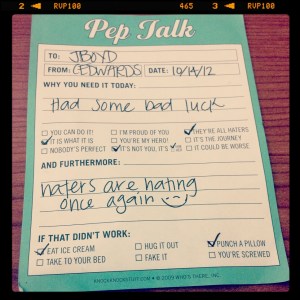 2 RVP100 465 3 RVP100
Pep Talk
TO: JBOYD
FROM: CEDWARDS DATE: 10/14/12
WHY YOU NEED IT TODAY:
Had some bad luck
YOU CAN DO IT! I'M PROUD OF YOU THEY'RE ALL HATERS
IT IS WHAT IT IS YOU'RE MY HERO! IT'S THE JOURNEY
NOBODY'S PERFECT IT'S NOT YOU, IT'S IT COULD BE WORSE
AND FURTHERMORE:
haters are hating
once again
IF THAT DIDN'T WORK:
EAT ICE CREAM HUG IT OUT PUNCH A PILLOW
TAKE TO YOUR BED FAKE IT YOU'RE SCREWED
KNOCKKNOCKSTUFF.COM © 2009 WHO'S THERE, INC.